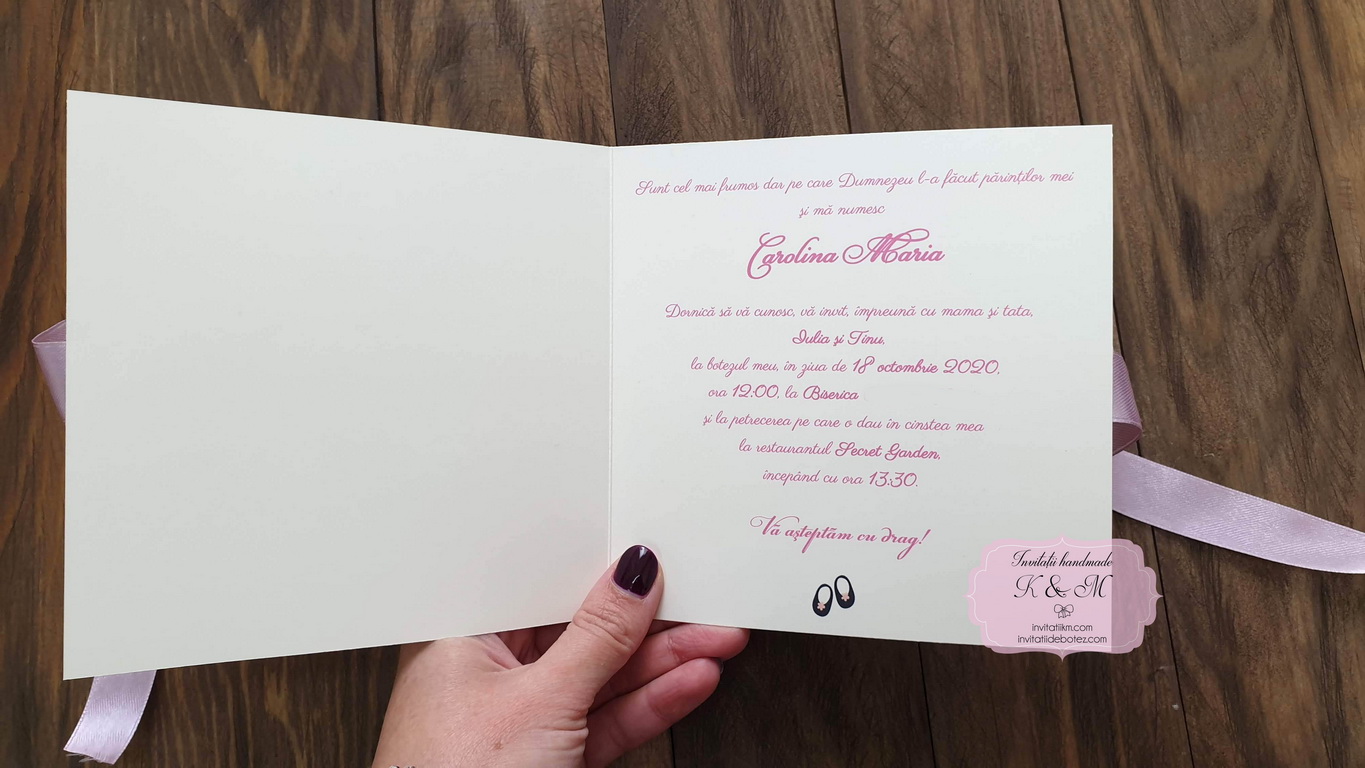 Sunt cel mai frumos dar pe care Dumnezeu l-a făcut părinților mei
și mă numesc
Carolina Maria
Dornică să vă cunosc, vă invit, împreună cu mama și tata,
Iulia și Tinu,
la botezul meu, în ziua de 18 octombrie 2020,
ora 12:00, la Biserica
și la petrecerea pe care o dau în cinstea mea
la restaurantul Secret Garden,
începând cu ora 13:30.
Vă așteptăm cu drag!
Invitații handmade
K & M
invitatiikm.com
invitatiidebotez.com